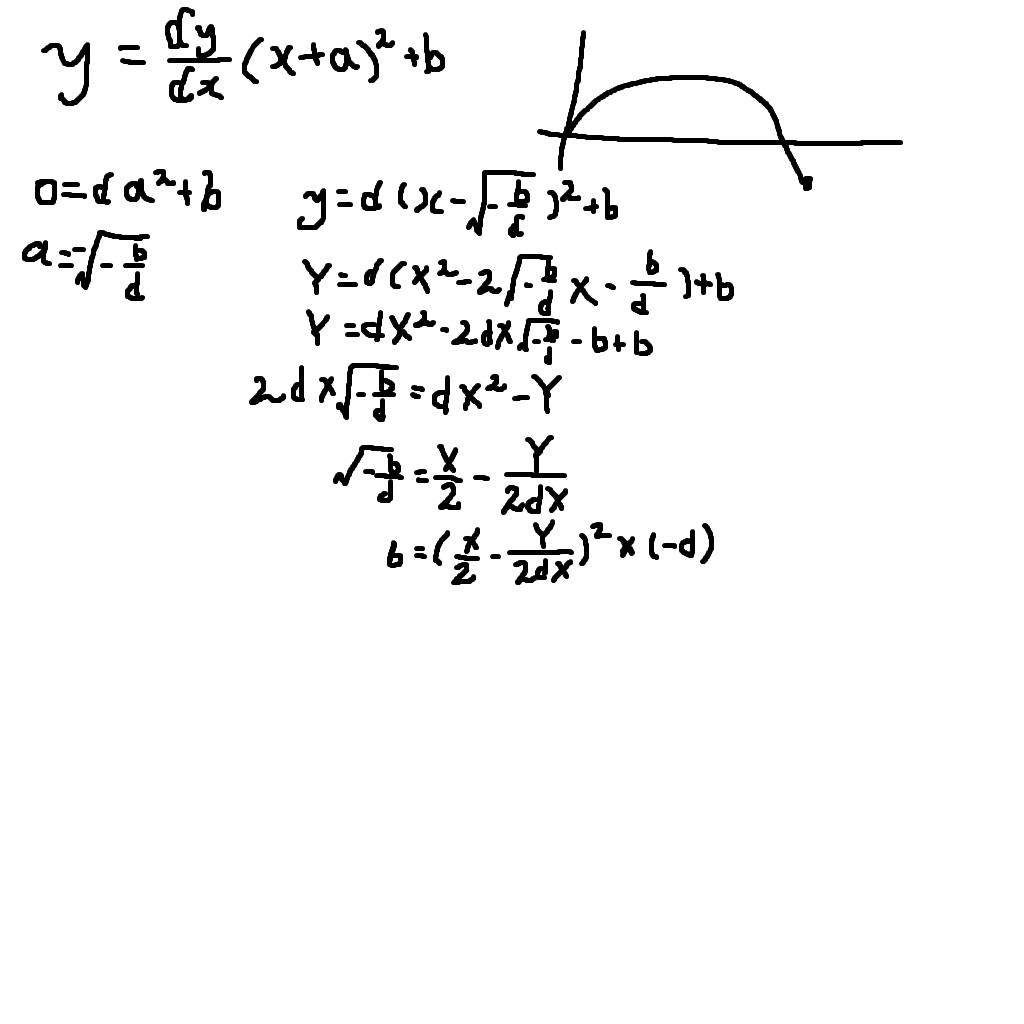 y = dy/dx (x+a)² + b
0 = da² + b
a = -√(-b/d)
y = d(x - √(-b/d))² + b
Y = d(X² - 2√(-b/d) X - b/d) + b
Y = dX² - 2dX√(-b/d) - b + b
2dX√(-b/d) = dX² - Y
√(-b/d) = X/2 - Y/2dX
b = (X/2 - Y/2dX)² × (-d)